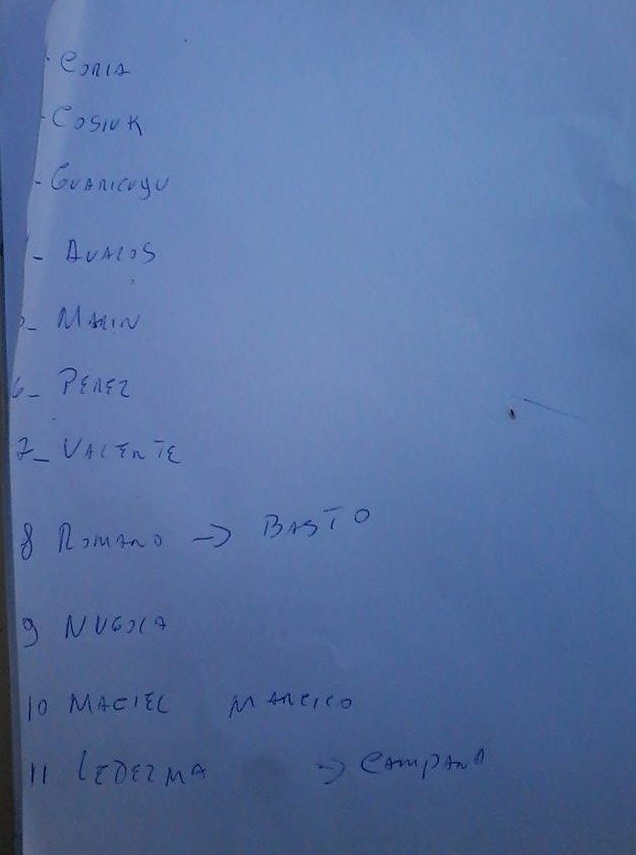 - CORIA
- COSIUK
- GUARICUYU
- AVALOS
- MARIN
6- PEREZ
7- VALENTE
8 ROMANO → BASTO
9 NUGOLA
10 MACIEL MARCICO
11 LEDEZMA → CAMPANA